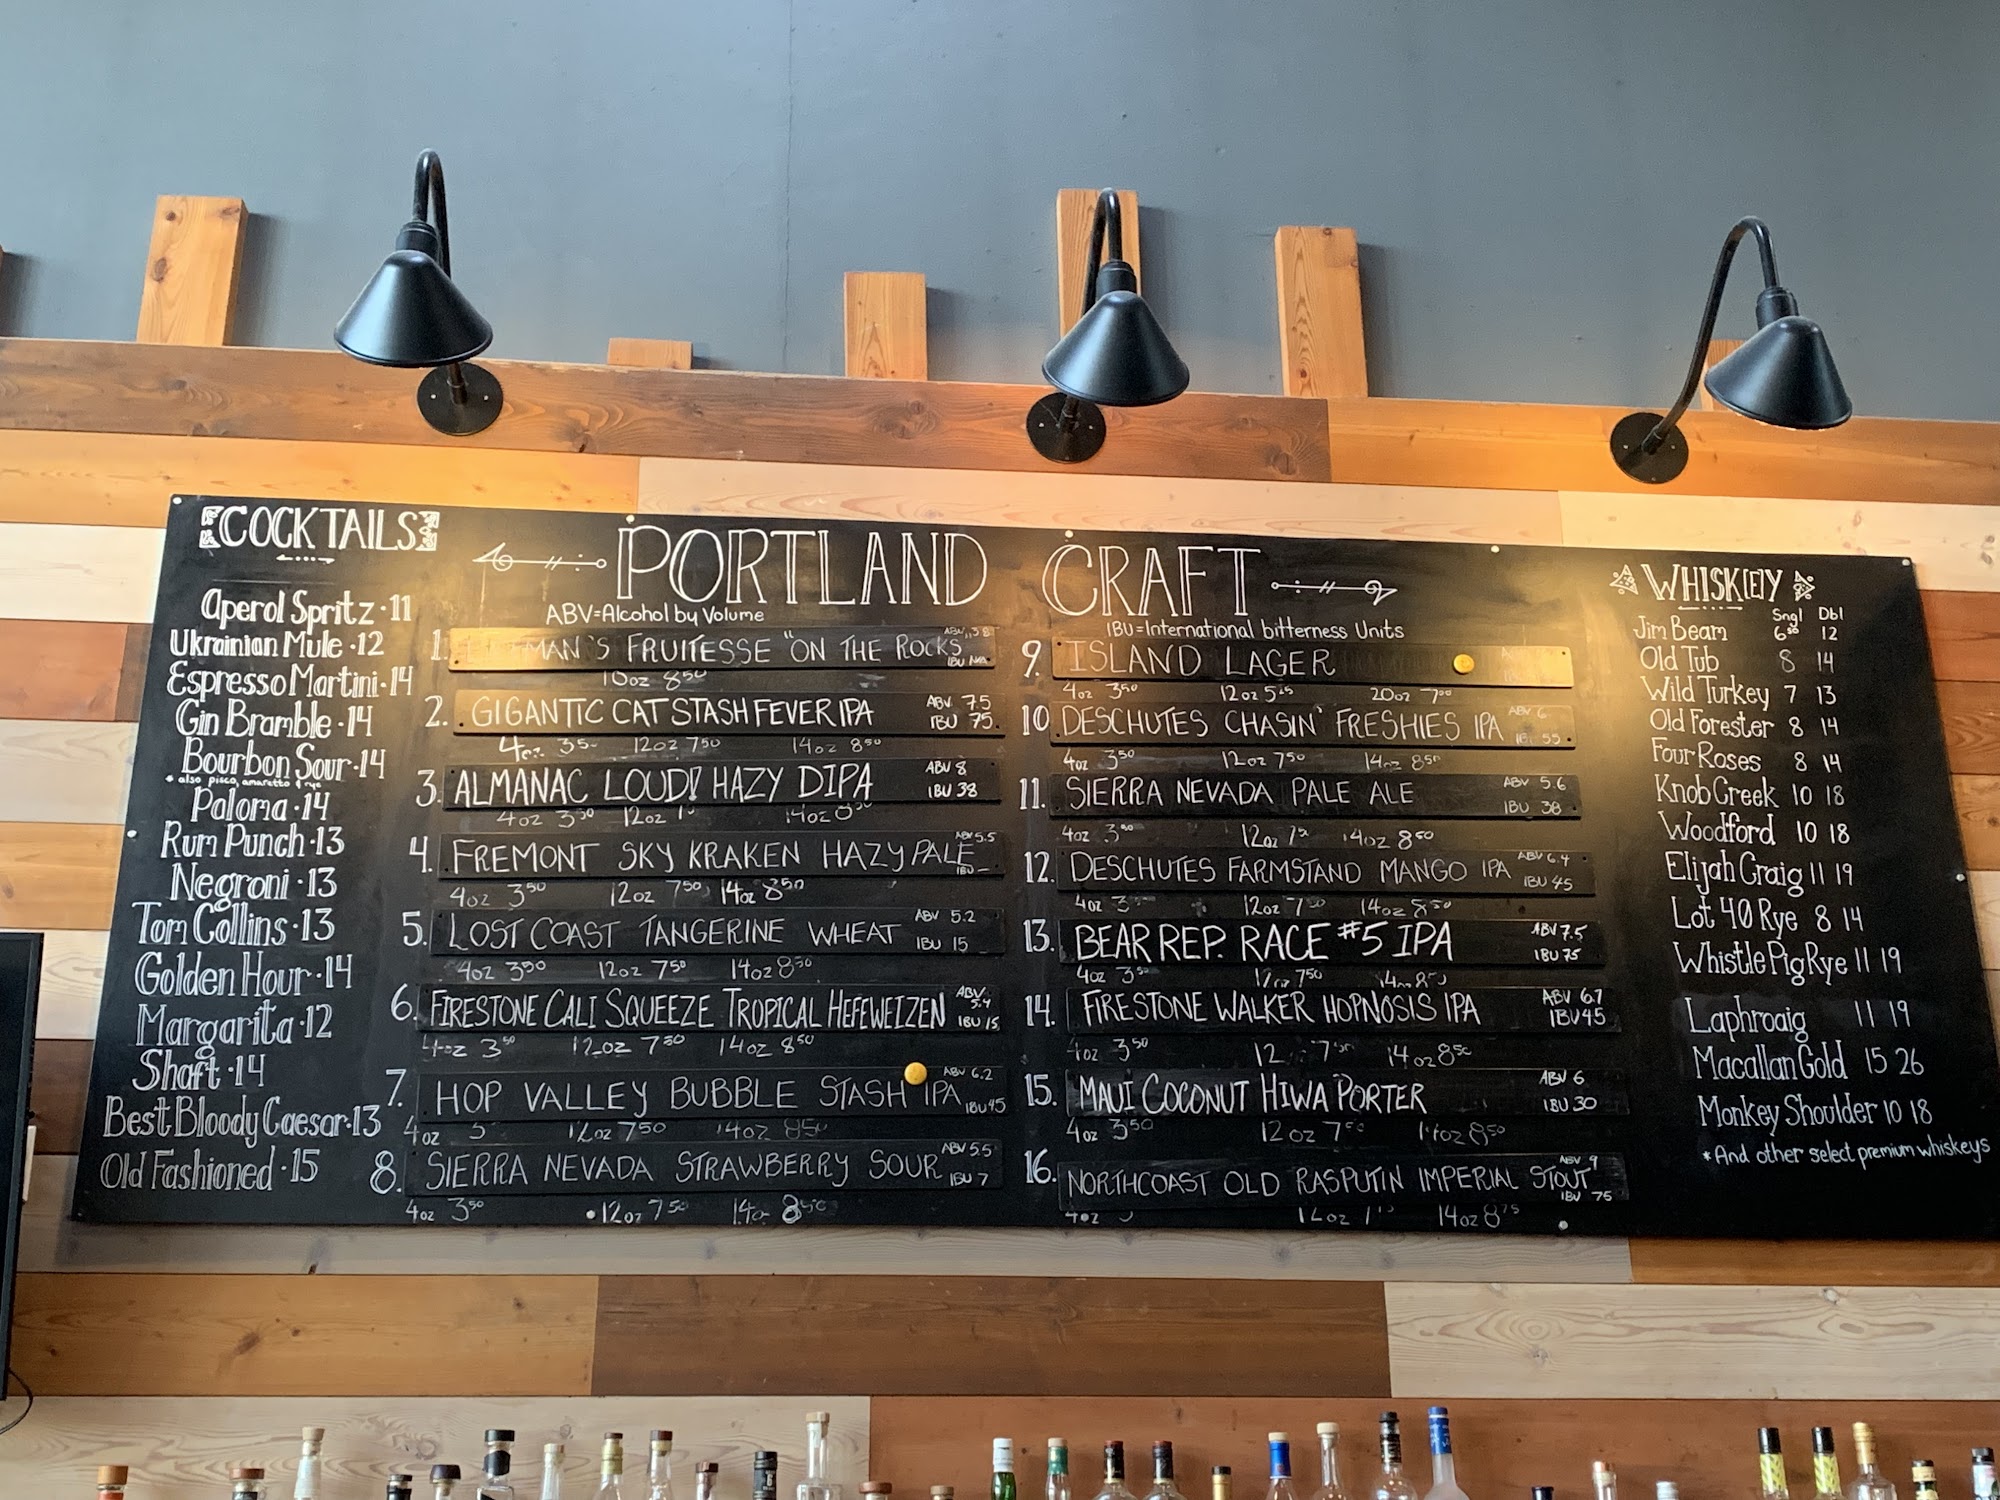 COCKTAILS
Aperol Spritz · 11
Ukrainian Mule · 12
Espresso Martini · 14
Gin Bramble · 14
Bourbon Sour · 14
* also pisco, amaretto & rye
Paloma · 14
Rum Punch · 13
Negroni · 13
Tom Collins · 13
Golden Hour · 14
Margarita · 12
Shaft · 14
Best Bloody Caesar · 13
Old Fashioned · 15
PORTLAND CRAFT
ABV=Alcohol by Volume
IBU=International bitterness Units
1. MAN'S FRUITESSE "ON THE ROCKS ABV IBU N/A
10oz 850
2. GIGANTIC CAT STASH FEVER IPA ABV 7.5 IBU 75
4oz 350 12oz 750 14oz 850
3. ALMANAC LOUD! HAZY DIPA ABV 8 IBU 38
4oz 350 12oz 14oz
4. FREMONT SKY KRAKEN HAZY PALE ABV 5.5 IBU –
4oz 350 12oz 750 14oz 850
5. LOST COAST TANGERINE WHEAT ABV 5.2 IBU 15
4oz 350 12oz 750 14oz 850
6. FIRESTONE CALI SQUEEZE TROPICAL HEFEWEIZEN ABV 5.4 IBU 15
4oz 350 12oz 750 14oz 850
7. HOP VALLEY BUBBLE STASH IPA ABV 6.2 IBU 45
4oz 12oz 750 14oz 850
8. SIERRA NEVADA STRAWBERRY SOUR ABV 5.5 IBU 7
4oz 350 12oz 750 14oz 850
9. ISLAND LAGER
4oz 350 12oz 20oz 700
10 DESCHUTES CHASIN' FRESHIES IPA ABV 6 IBU 55
4oz 350 12oz 750 14oz 850
11. SIERRA NEVADA PALE ALE ABV 5.6 IBU 38
4oz 350 12oz 14oz 850
12. DESCHUTES FARMSTAND MANGO IPA ABV 6.4 IBU 45
4oz 12oz 14oz 850
13. BEAR REP. RACE #5 IPA ABV 7.5 IBU 75
4oz 350 12oz 750 14oz 850
14. FIRESTONE WALKER HOPNOSIS IPA ABV 6.7 IBU 45
4oz 350 12 750 14oz 850
15. MAUI COCONUT HIWA PORTER ABV 6 IBU 30
4oz 350 12oz 750 14oz 850
16. NORTHCOAST OLD RASPUTIN IMPERIAL STOUT ABV 9 IBU 75
4oz 12oz 14oz 875
WHISK[E]Y
Sngl Dbl
Jim Beam 650 12
Old Tub 8 14
Wild Turkey 7 13
Old Forester 8 14
Four Roses 8 14
Knob Creek 10 18
Woodford 10 18
Elijah Craig 11 19
Lot 40 Rye 8 14
WhistlePig Rye 11 19
Laphroaig 11 19
Macallan Gold 15 26
Monkey Shoulder 10 18
*And other select premium whiskeys